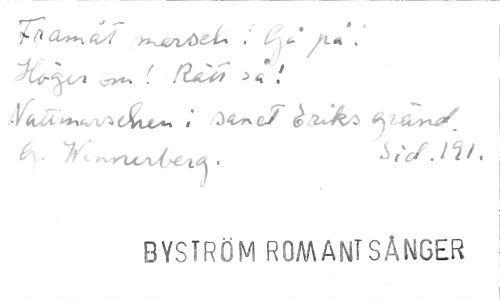 Framåt marsch! Gå på!
Höger om! Rätt så!
Nattmarschen i sanct Eriks gränd.
G. Wennerberg. Sid. 191.
BYSTRÖM ROMANT SÅNGER